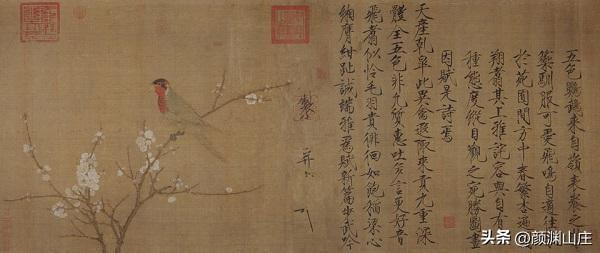 五色鸚鵡來自嶺表養之
籞馴服可愛飛鳴自適往
於苑囿間方中春繁杏遍
翔翥其上雅詫容與自有一
種態度縱目觀之宛勝圖畫
因賦是詩焉
天產乾皋此異禽遐陬來貢九重深
體全五色非凡質惠吐多言更好音
飛翥似憐毛羽貴徘徊如飽稻粱心
緗膺紺趾誠端雅為賦新篇步武吟
头条 @颜渊山庄